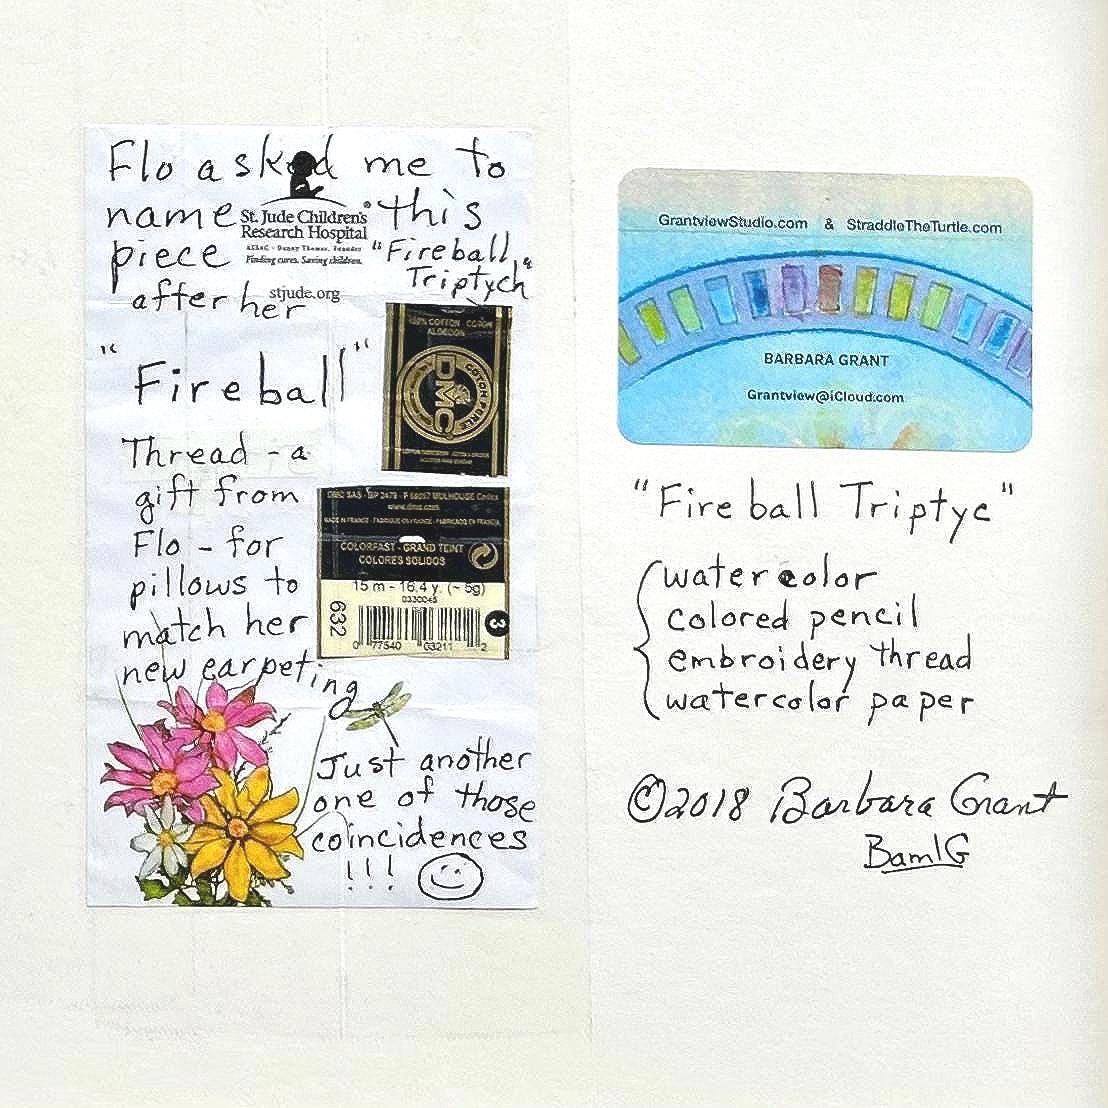 Flo asked me to
name this
piece "Fireball
Triptych"
after her
St. Jude Children's®
Research Hospital
ALSAC · Danny Thomas, Founder
Finding cures. Saving children.
stjude.org
"Fireball"
Thread - a
gift from
Flo - for
pillows to
match her
new carpeting
100% COTTON - COTON
ALGODON
DMC
COTON PUR
DMC SAS - BP 2479 - F 68057 MULHOUSE Cedex
www.dmc.com
MADE IN FRANCE - FABRIQUE EN FRANCE - FABRICADO EN FRANCIA
COLORFAST - GRAND TEINT
COLORES SOLIDOS
15 m - 16.4 y. (~ 5g)
0330045
632
3
0 77540 03211 2
Just another
one of those
coincidences
!!!
GrantviewStudio.com & StraddleTheTurtle.com
BARBARA GRANT
Grantview@iCloud.com
"Fireball Triptyc"
watercolor
colored pencil
embroidery thread
watercolor paper
©2018 Barbara Grant
Bam!G